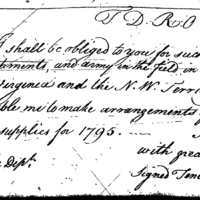 T. D. R. O
I shall be obliged to you for suc
and army in the field in
Virginea and the N. W. Terr
ble me to make arrangements
supplies for 1795.
with grea
Dept.
Signed Tenc